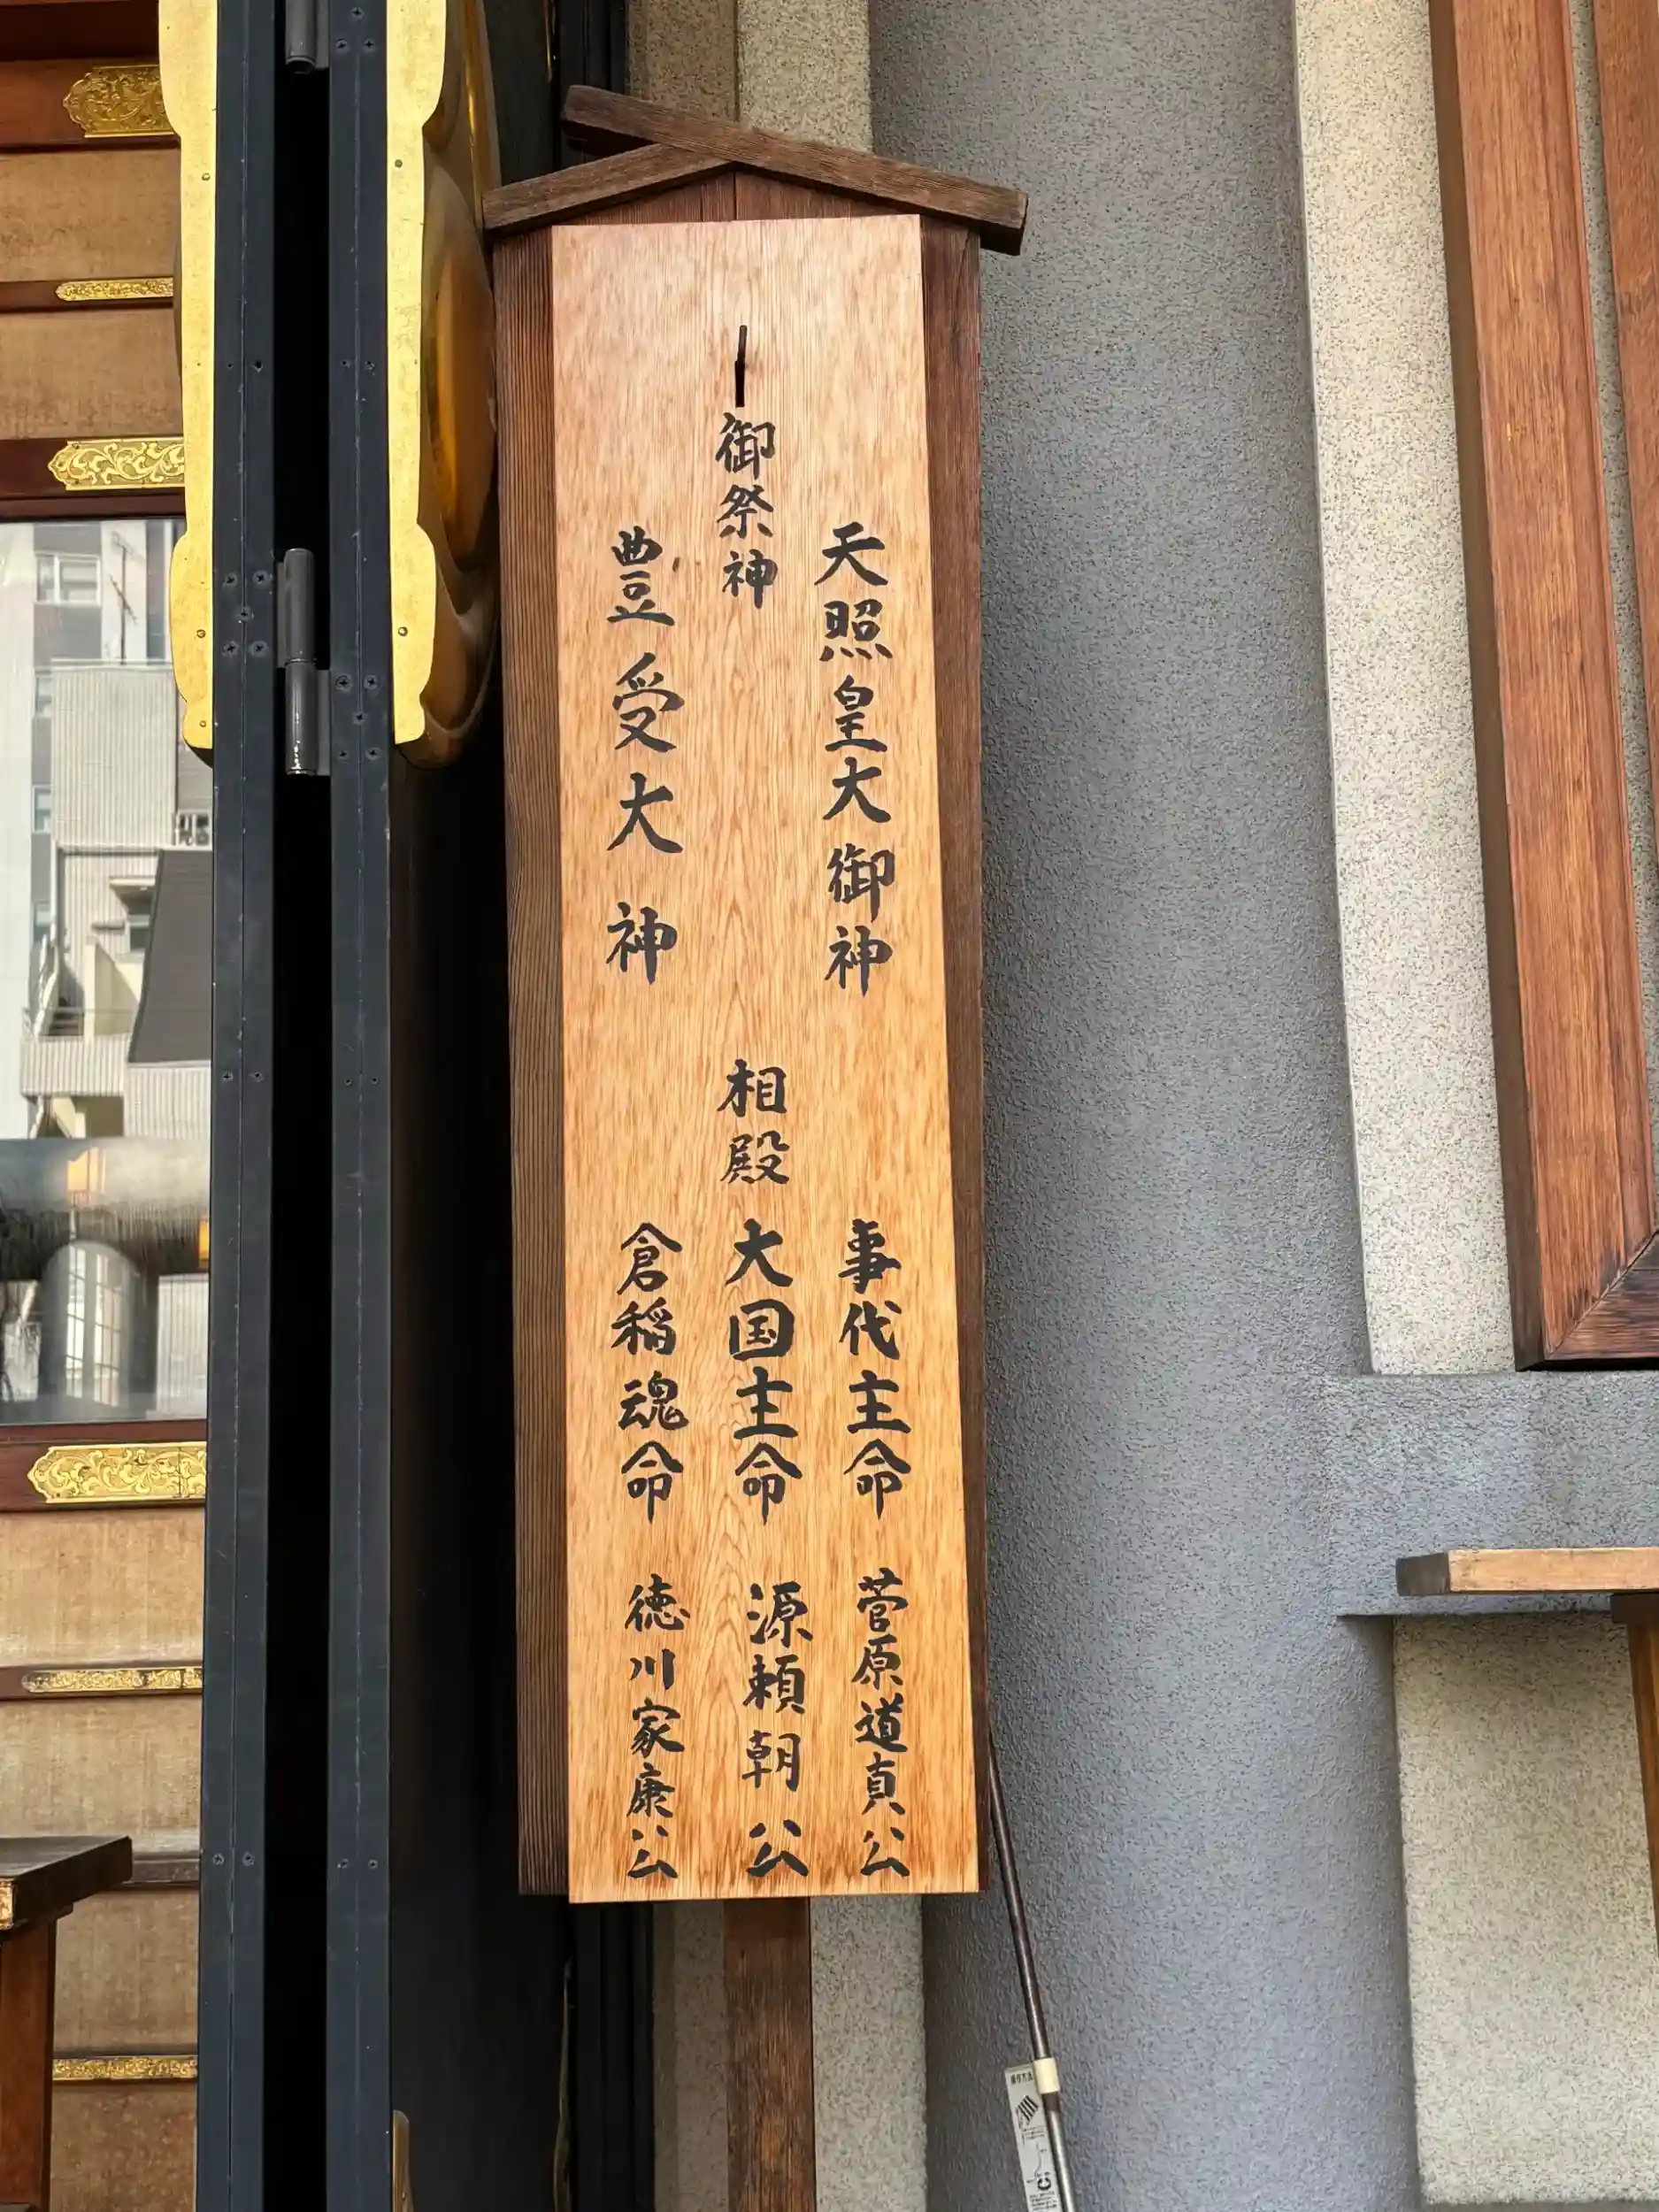 御祭神
天照皇大御神
豊受大神
相殿
事代主命
大国主命
倉稲魂命
菅原道真公
源頼朝公
徳川家康公